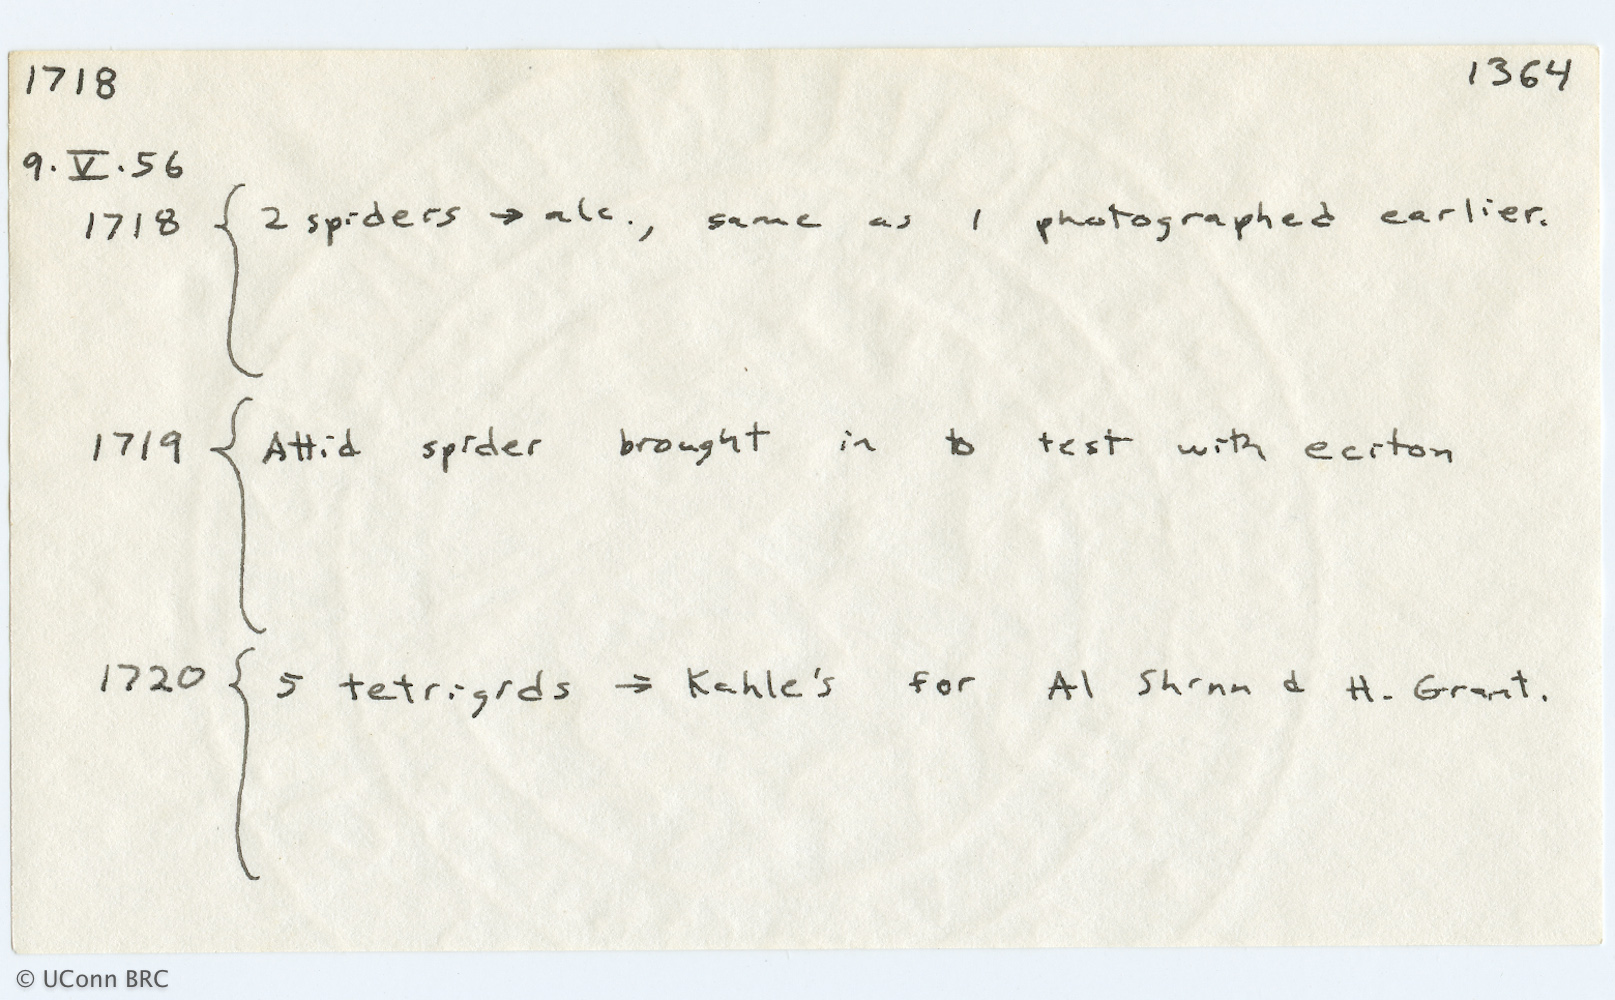 1718 1364
9.V.56
1718 { 2 spiders → alc., same as 1 photographed earlier.
1719 { Attid spider brought in to test with eciton
1720 { 5 tetrigids → Kahle's for Al Shinn & H. Grant.
© UConn BRC